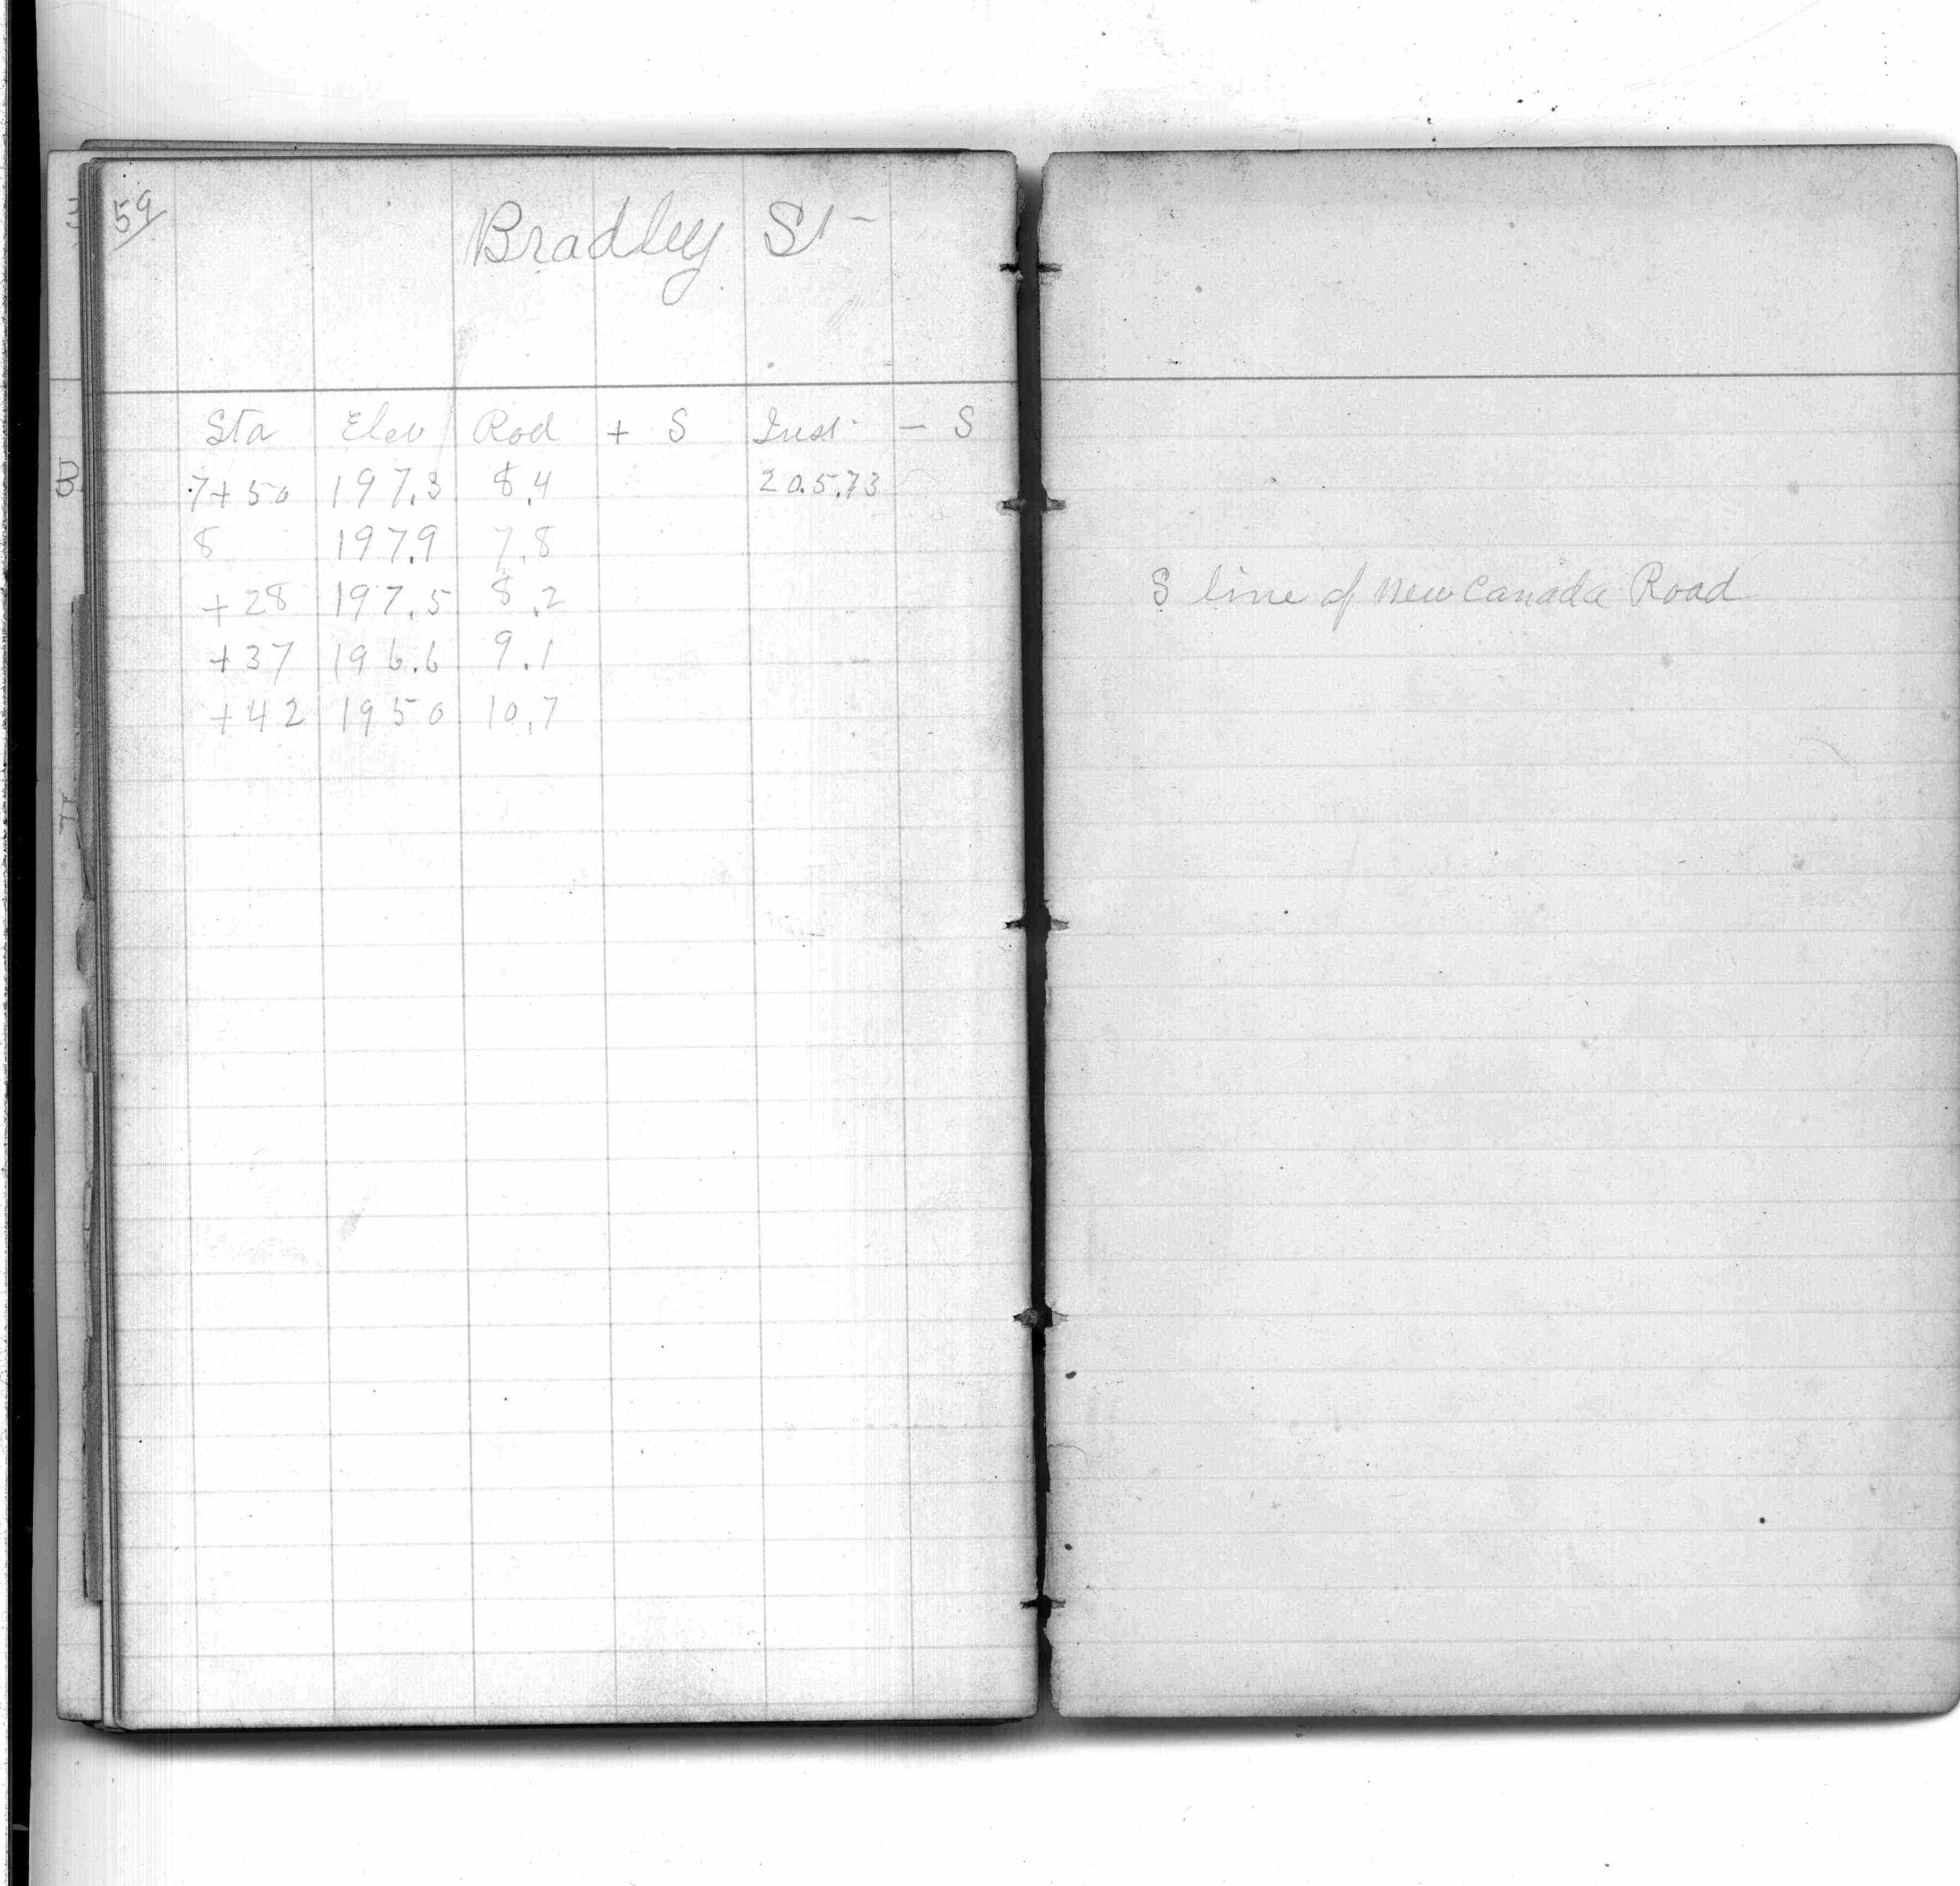 59
Bradley St
Sta Elev Rod + S Inst - S
7+50 197.3 8.4 205.73
8 197.9 7.8
+28 197.5 8.2 S line of New Canada Road
+37 196.6 9.1
+42 195 0 10.7